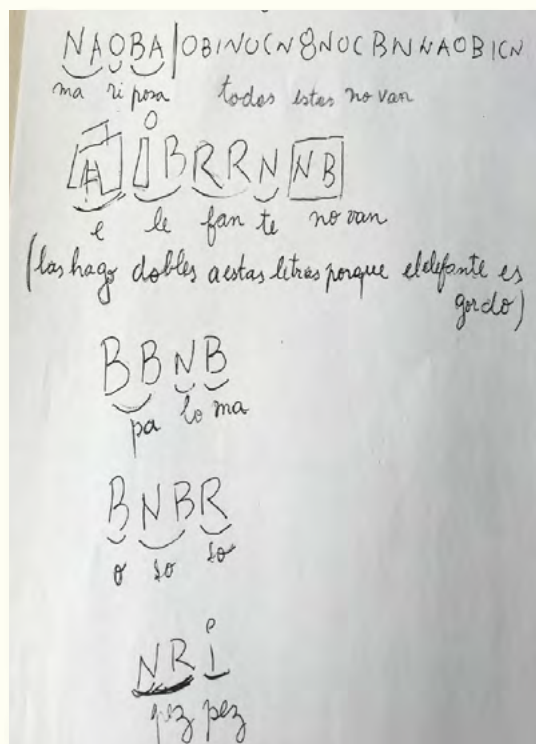 NAOBA|OBINUCN8NOCBNNAOBICN
ma ri posa todas estas no van
O
A I B R R N NB
e le fan te no van
(las hago dobles a estas letras porque el elefante es
gordo)
BBNB
pa lo ma
BNBR
o so so
NRI
pez pez